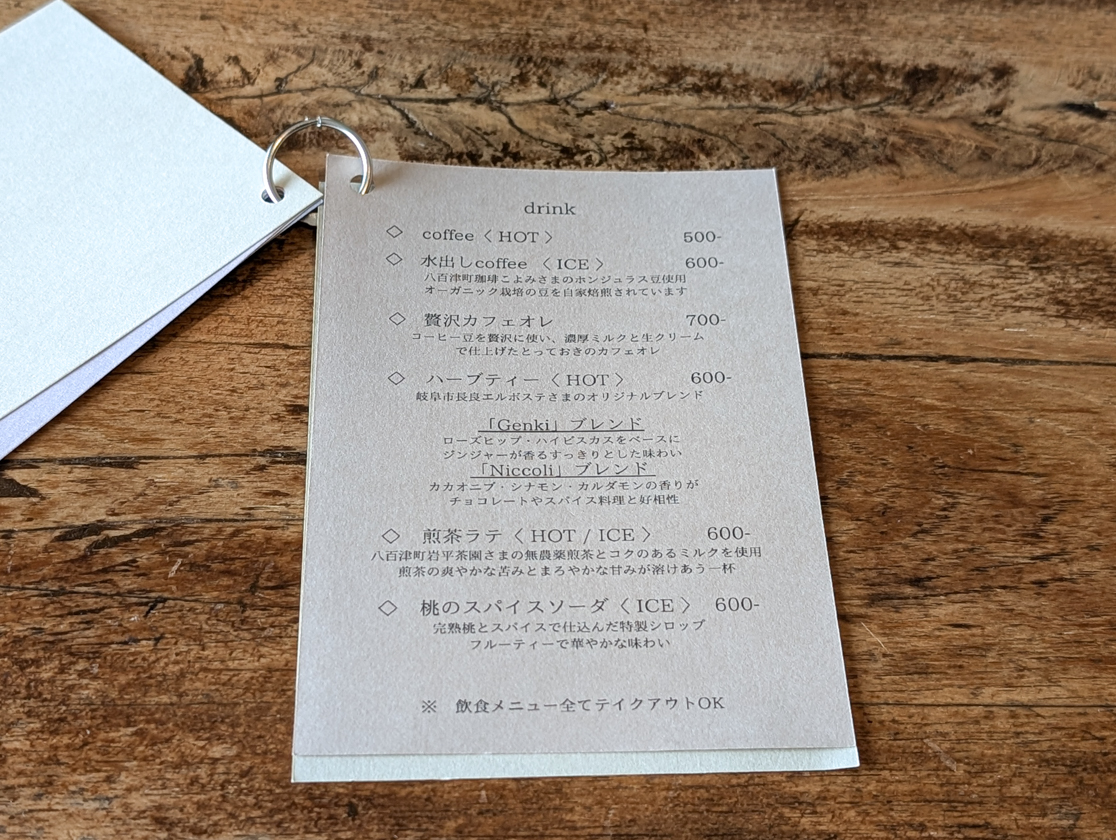 drink
◇ coffee〈 HOT 〉 500-
◇ 水出しcoffee 〈 ICE 〉 600-
八百津町珈琲こよみさまのホンジュラス豆使用
オーガニック栽培の豆を自家焙煎されています
◇ 贅沢カフェオレ 700-
コーヒー豆を贅沢に使い、濃厚ミルクと生クリーム
で仕上げたとっておきのカフェオレ
◇ ハーブティー〈 HOT 〉 600-
岐阜市長良エルボステさまのオリジナルブレンド
「Genki」ブレンド
ローズヒップ・ハイビスカスをベースに
ジンジャーが香るすっきりとした味わい
「Niccoli」ブレンド
カカオニブ・シナモン・カルダモンの香りが
チョコレートやスパイス料理と好相性
◇ 煎茶ラテ〈 HOT / ICE 〉 600-
八百津町岩平茶園さまの無農薬煎茶とコクのあるミルクを使用
煎茶の爽やかな苦みとまろやかな甘みが溶けあう一杯
◇ 桃のスパイスソーダ〈 ICE 〉 600-
完熟桃とスパイスで仕込んだ特製シロップ
フルーティーで華やかな味わい
※ 飲食メニュー全てテイクアウトOK